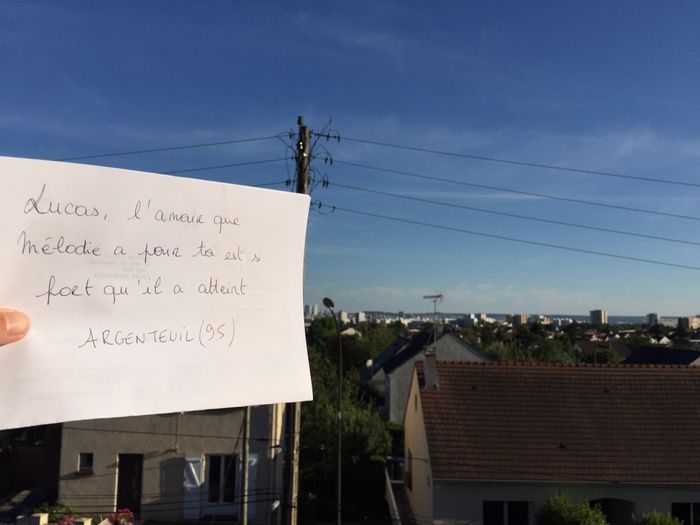 Lucas, l'amour que
Mélodie a pour toi est si
fort qu'il a atteint
ARGENTEUIL (95)